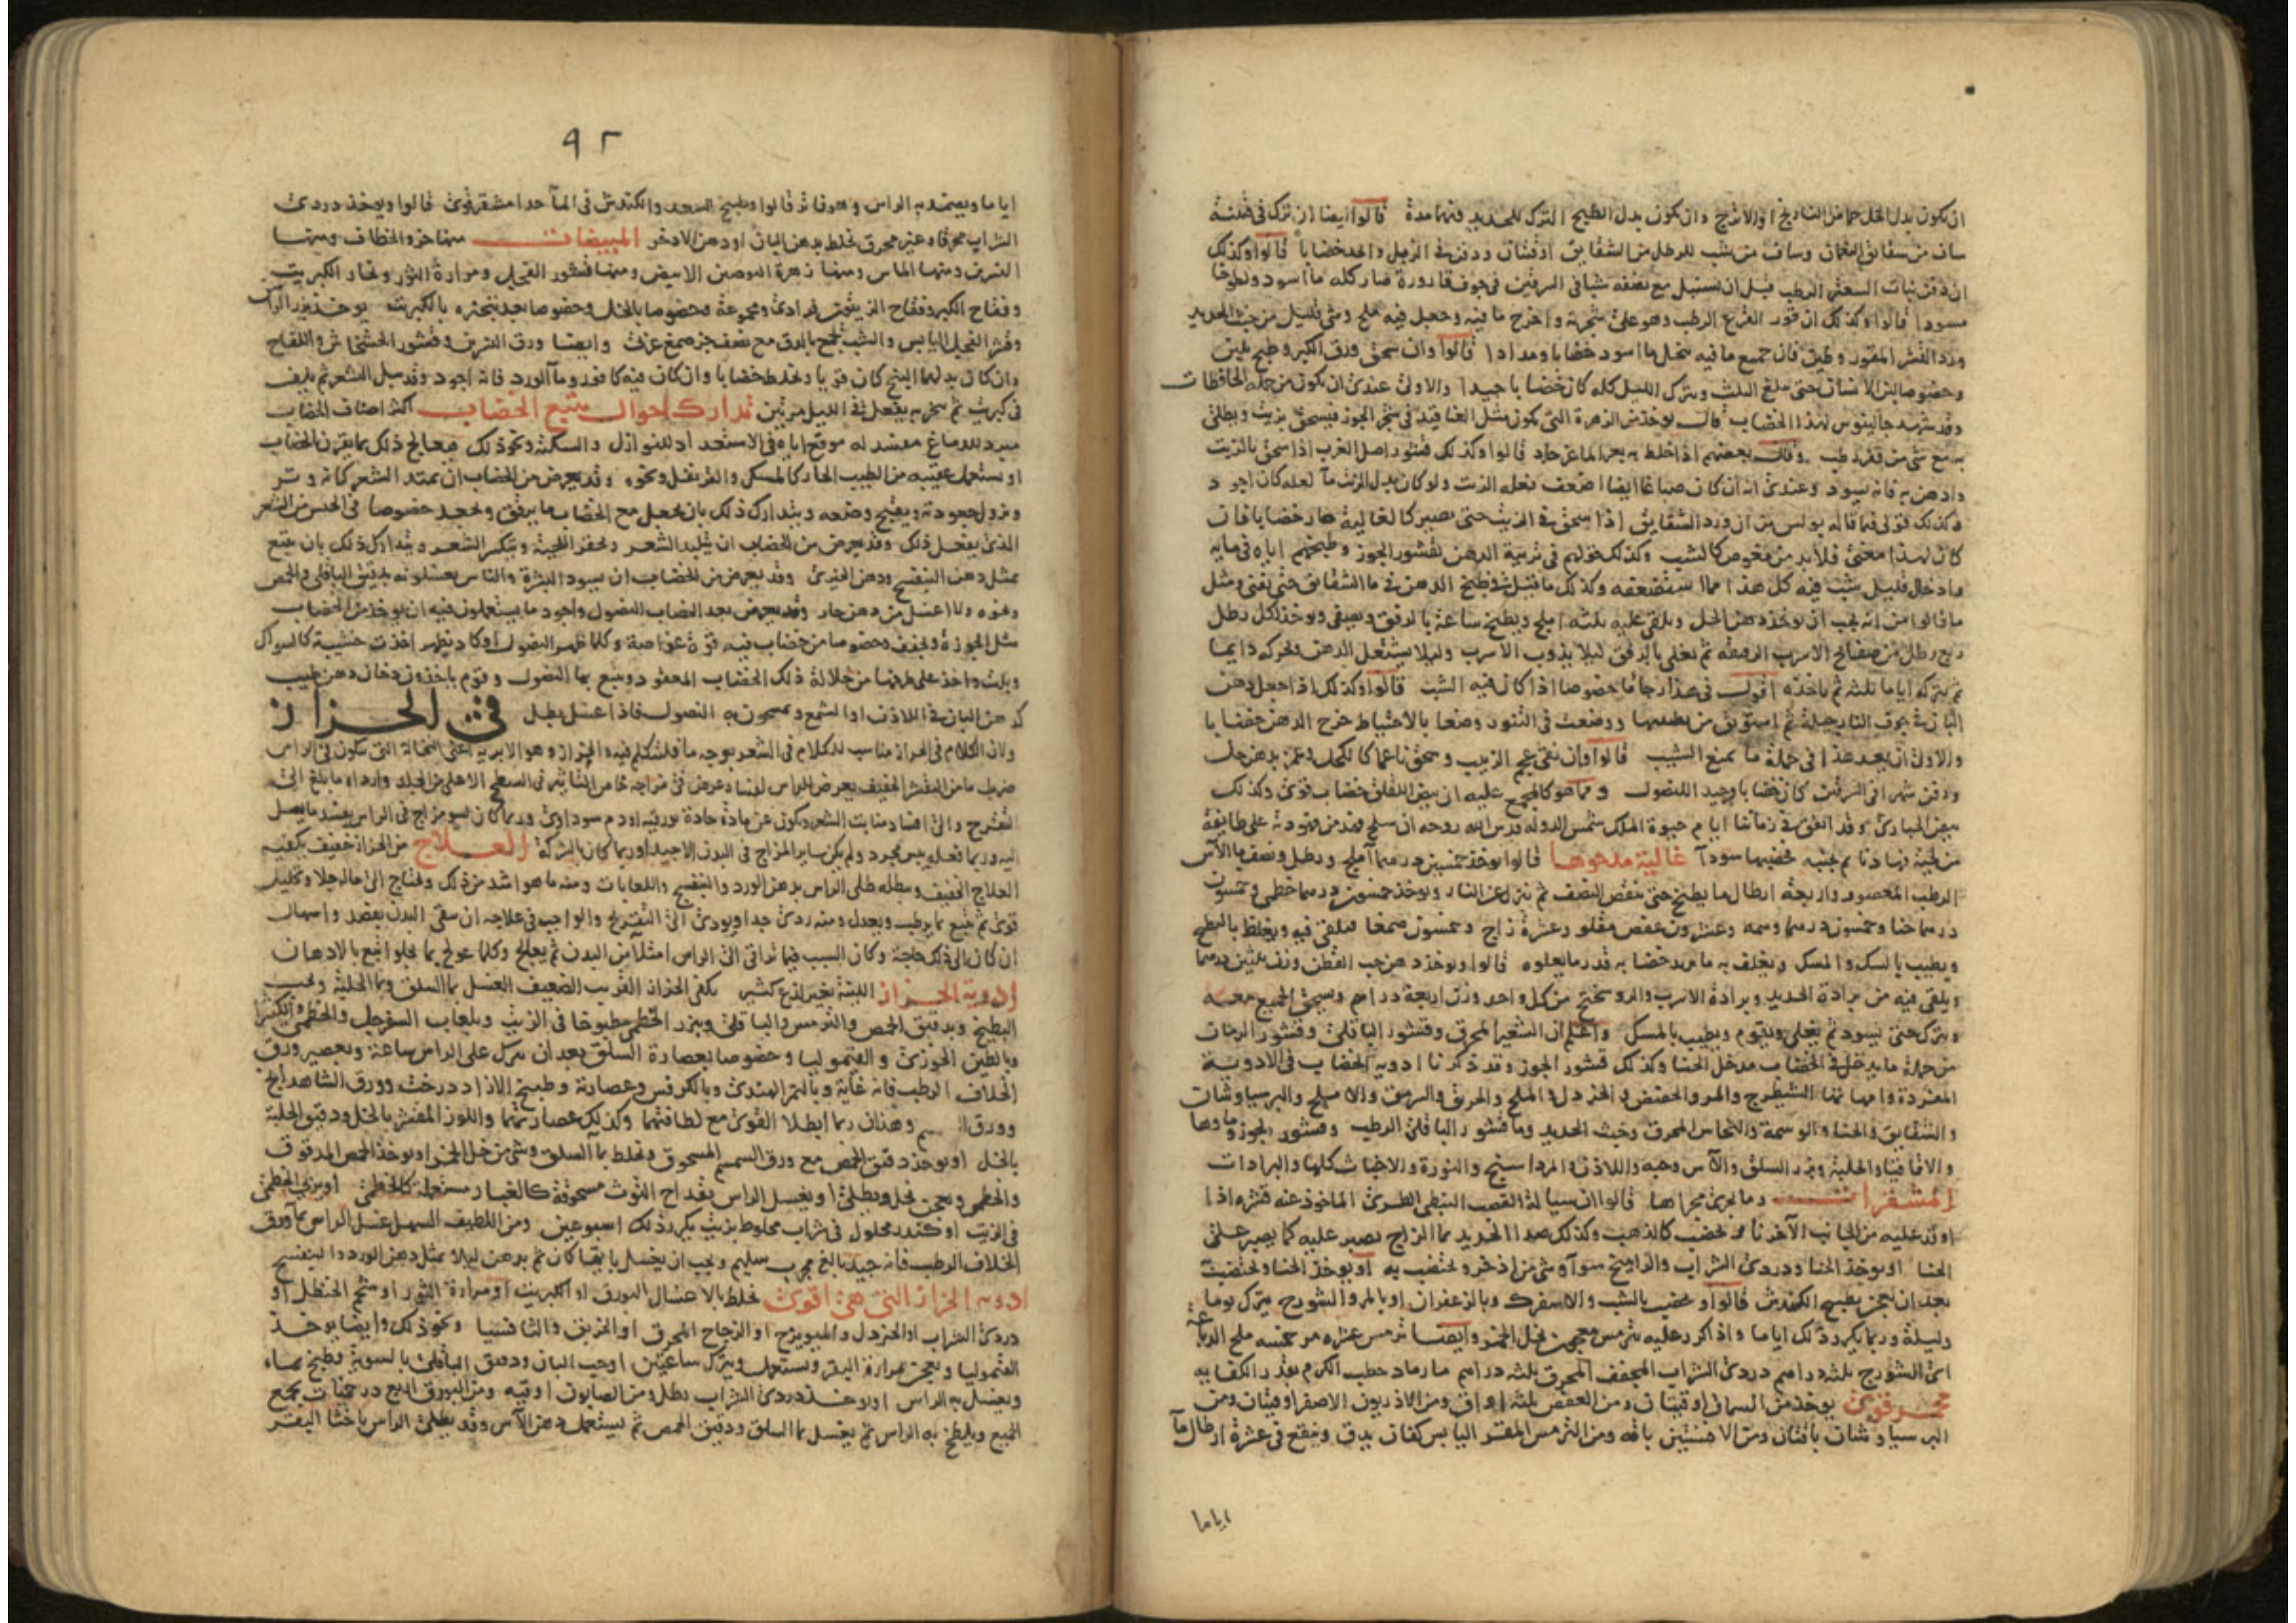 ان يكون بدل الخل حماض النارنج او الاترج وان يكون بدل الطبخ الترك للحديد فيهما مدة قالوا ايضا ان ترك في قنينة
ساف من شقائق النعمان وساف من شب للرطل من الشقايق اوقيتان ودفن في الزبل واحد خضابا قالوا وكذلك
ان دفن نبات السعتر الرطب قبل ان يسنبل مع نصفه شبا في السرقين في جوف قارورة صار كله ماء اسود ولطوخا
مسودا قالوا وكذلك ان قور القرع الرطب وهو على شجرته واخرج ما فيه وجعل فيه ملح وشي قليل من خبث الحديد
ورد القشر المقور وطين فان جميع ما فيه ينحل ماء اسود خضابا ومدادا قالوا وان سحق ورق الكبر وطبخ بلبن
وخصوصا لبن الانسان حتى يبلغ الثلث ويترك الليل كله كان خضابا جيدا والاولى عندي ان يكون من جملة الحافظات
وقد شهد جالينوس لهذا الخضاب قال يوخذ من الزهرة التي تكون مثل العناقيد في شجر الجوز فيسحق بزيت ويطلى
به مع شي من قفر رطب وقال بعضهم اذا خلط به بعر الماعز جاد قالوا وكذلك قشور اصل الغرب اذا سحق بالزيت
وادهن به فانه يسود وعندي انه ان كان صباغا ايضا اضعف فعله الزيت ولو كان بدل الزيت ماء لعله كان اجود
وكذلك قولى فيما قاله بولس من ان ورد الشقايق اذا سحق في الزيت حتى يصير كالغالية صار خضابا فان
كان لهذا معنى فلا بد من مغوص كالشب وكذلك قولهم في تربية الدهن بقشور الجوز وطبخهم اياه في مايه
وادخال قليل شب فيه كل هذا مما استضعفه وكذلك ما قيل في طبخ الدهن في ماء الشقايق حتى يفنى ومثل
ما قالوا من انه يجب ان يوخذ دهن الخل ويلقى عليه ثلثه املج ويطبخ ساعة بالرفق ويصفى ويوخذ لكل رطل
ربع رطل من صفائح الاسرب الرقيقة ثم يغلى بالرفق ليلا يذوب الاسرب وليلا يشتعل الدهن ويحركه دايما
ثم يتركه اياما ثلثه ثم ياخذه اقول في هذا رجاء ما خصوصا اذا كان فيه الشب قالوا وكذلك اذا جعل دهن
البان في جوف النارجيلة ثم استوثق من تطيينها ووضعت في التنور وضعا بالاحتياط خرج الدهن خضابا
والاولى ان يعد هذا في جملة ما يمنع الشيب قالوا وان نقى عجم الزبيب وسحق ناعما كالكحل وغمر بدهن حل
ودفن شهرا في السرقين كان خضابا جيد النصول ومما هو كالمجمع عليه ان بيض اللقلق خضاب قوي وكذلك
بيض الحبارى وقد اتفق في زماننا ايام حيوة الملك شمس الدولة قدس الله روحه ان سلح فهد من فهوده على طايفة
من لحية فهاد نايم بجنبه فخضبها سوداء غالية مدحوها قالوا يوخذ خمسين درهما املج ورطل ونصف ماء الآس
الرطب المعصور واربعة ارطال ماء يطبخ حتى ينقص النصف ثم ينزل عن النار ويوخذ خمسون درهما خطمى وخمسون
درهما حنا وخمسون درهما وسمه وعشرون عفص مقلو وعشرة زاج وخمسون صمغا فيلقى فيه ويغلظ بالطبخ
ويطيب بالسك والمسك ويغلف به ما يريد خضابه قدر ما يعلوه قالوا ويوخذ دهن حب القطن ونف ثلثين درهما
ويلقى فيه من برادة الحديد وبرادة الاسرب والروسختج من كل واحد وزن اربعة دراهم ويسحق الجميع معه
ويترك حتى يسود ثم يغلى ويقوم ويطيب بالمسك واعلم ان الشعير المحرق وقشور الباقلى وقشور الرمان
من جملة ما يدخل في الخضاب مدخل الحنا وكذلك قشور الجوز وقد ذكرنا ادوية الخضاب في الادوية
المفردة وامهاتها الشيطرج والمر والحضض والخردل والملح والحرف والاملج والبرسياوشان
والشقايق والحنا والوسمة والنحاس المحرق وخبث الحديد وماء قشور الباقلى الرطب وقشور الجوز وماوها
والاقاقيا والحلبة وبزر السلق والآس وحبه واللاذن والمرداسنج والنورة والاخباث كلها والبرادات
المشقرات وما يجري مجراها قالوا ان سيالة القصب النبطى الطرى الماخوذ عنه قشره اذا
اوقد عليه من الجانب الآخر نارا تخضب كالذهب وكذلك صدا الحديد بماء الزاج يصبر عليه كما يصبر على
الحنا او يوخذ الحنا ودردى الشراب والراتينج سواء وشى من اذخر ويختضب به او يوخذ الحنا ويختضب
بعد ان يعجن بطبيخ الكندش قالوا ويخضب بالشب والاسفرك وبالزعفران او بالمر والشورج يترك يوما
وليلة وربما يكرر ذلك اياما واذا كرر عليه ترمس معجون بخل الخمر وايضا ترمس عشره مر خمسه ملح الدباغة
اى الشورج ثلثه دراهم دردى الشراب المجفف المحرق ثلثه دراهم ماء رماد حطب الكرم بقدر الكفايه
محمر قوي يوخذ من السماق اوقيتان ومن العفص ثلثه اواق ومن الاذريون الاصفر اوقيتان ومن
البرسياوشان باقتان ومن الافسنتين باقه ومن الترمس المقشر اليابس كفان يدق وينقع في عشرة ارطال ماء
اياما
٩٢
اياما ويضمد به الراس وهو فاتر قالوا وطبيخ السعد والكندش في الماء جدا مشقر قوى قالوا ويوخذ دردى
الشراب محرقا وغير محرق يخلط بدهن البان او دهن الاذخر المبيضات منها خرو الخطاف ومنها
النسرين ومنها الماش ومنها زهرة البوصين الابيض ومنها قشور الفجل ومرارة الثور وبخار الكبريت
وفقاح الكبر وفقاح الزيتون فرادى ومجموعة وخصوصا بالخل وخصوصا بعد تبخيره بالكبريت يوخذ بزر
وقشر الفجل اليابس والشب يجمع بالدق مع نصف جز صمغ عربى وايضا ورق النسرين وقشور الخشخاش واللقاح
وان كان بدلهما البنج كان قويا ويخلط خضابا وان كان فيه كافور وماء الورد فانه اجود وقد يبل الشعر ثم يلف
في كبريت ثم يبخر به يفعل في الليل مرتين تدارك احوال يتبع الخضاب اكثر اصناف الخضاب
مبرد للدماغ مفسد له موقع اياه في الاستعداد للنوازل والسكتة ونحو ذلك فيعالج ذلك بما يقرن الخضاب
او يستعمل عقيبه من الطيب الحار كالمسك والقرنفل ونحوه وقد يعرض من الخضاب ان يمتد الشعر كانه وتر
ويزول جعودته ويقبح وضعه ويتدارك ذلك بان يجعل مع الخضاب ما يرقق ويجعد خصوصا في الجنس من الشعر
الذى يفعل ذلك وقد يعرض من الخضاب ان يتلبد الشعر ويحفز اللحية وينكسر الشعر ويتدارك ذلك بان يتبع
بمثل دهن البنفسج ودهن الخيري وقد يعرض من الخضاب ان يسود البشرة والناس يغسلونه بدقيق الباقلى والحمص
ونحوه ولا اغسل من دهن حار وقد يعرض بعد الخضاب النصول واجود ما يستعملون فيه ان يوخذ من الخضاب
مثل الجوزة ويجفف وخصوصا من خضاب فيه قوة غواصة وكلما ظهر النصول او كاد يظهر اخذت خشبة كالسواك
وبلت واخذ على طرفها من حلالة ذلك الخضاب المعقود ويتبع بها النصول وقوم ياخذون دخان دهن طيب
كدهن البان في اللاذن او الشمع ويمسحون به النصول فاذا غسل بطل في الحزاز
ولان الكلام في الحزاز مناسب للكلام في الشعر بوجه ما فلنتكلم فيه والحزاز وهو الابرية اعنى النخالة التى تكون في الراس
ضرب ما من التقشر الخفيف يعرض للراس لفساد عرض في مزاجه خاص التاثير في السطح الاعلى من الجلد وارداه ما بلغ الى
التقرح والى افساد منابت الشعر وتكون عن مادة حادة بورقيه او دم سوداوى وربما كان لسو مزاج في الراس يفسد ما يصل
اليه وربما فعله يبس مجرد ولم يكن ساير المزاج في البدن الا جيدا وربما كان بالشركة العلاج من الحزاز خفيف يكفيه
العلاج الخفيف ويبطله طلى الراس بدهن الورد والبنفسج واللعابات ومنه ما هو اشد من ذلك ويحتاج الى ماله جلاء وتحليل
قوى ثم يتبع بما يرطب ويعدل ومنه ردى جدا ويودى الى التقريح والواجب في علاجه ان ينقى البدن بفصد واسهال
ان كان الى ذلك حاجة وكان السبب فيما تراقى الى الراس امتلاء من البدن ثم يعالج وكلما عولج بما يجلو اتبع بالادهان
ادوية الحزاز اللينة بغير لذع كثير يكفى الحزاز القريب الضعيف الغسل بماء السلق وبماء الحلبة وبحب
البطيخ وبدقيق الحمص والترمس والباقلى وببزر الخطمى مطبوخا في الزيت وبلعاب السفرجل والخطمى والكثيرا
وبالطين الخوزى والقيموليا وخصوصا بعصارة السلق بعد ان يترك على الراس ساعة وبعصير ورق
الخلاف الرطب فانه غاية وبالتمر الهندى وبالكرفس وعصارته وطبيخ الازاددرخت وورق الشاهدانج
وورق السمسم وهذان ربما ابطلا القوى مع لطافتهما وكذلك عصارتهما واللوز المقشر بالخل ودقيق الحلبة
بالخل او يوخذ دقيق الحمص مع ورق السمسم المسحوق ويخلط بماء السلق وشى من خل الخمر او يوخذ الحمص المدقوق
والخطمى ويعجن بخل ويطلى او يغسل الراس بقداح التوث مسحوقة كالغبار مستعملة كالخطمى او بزر الخطمى
في الزيت او كندر محلول في شراب مخلوط بزيت يكرر ذلك اسبوعين ومن اللطيف السهل غسل الراس بماء ورق
الخلاف الرطب فانه جيد بالغ مجرب سليم ويجب ان يغسل بايهما كان ثم يدهن ليلا بمثل دهن الورد والبنفسج
ادوية الحزاز التى هى اقوى يخلط بالاغسال البورق او الكبريت او مرارة الثور او شحم الحنظل او
دردى الشراب او الخردل والميويزج او الزجاج المحرق او الخربق والثافسيا ونحو ذلك وايضا يوخذ
القيموليا ويعجن بمرارة البقر ويستعمل ويترك ساعتين او حب البان ودقيق الباقلى بالسوية وطبخ بماء
ويغسل به الراس او يوخذ دردى الشراب رطل ومن الصابون اوقيه ومن البورق اربع درخميات يجمع
الجميع ويلطخ به الراس ثم يغسل بماء السلق ودقيق الحمص ثم يستعمل دهن الآس وقد يطلى الراس باخثا البقر